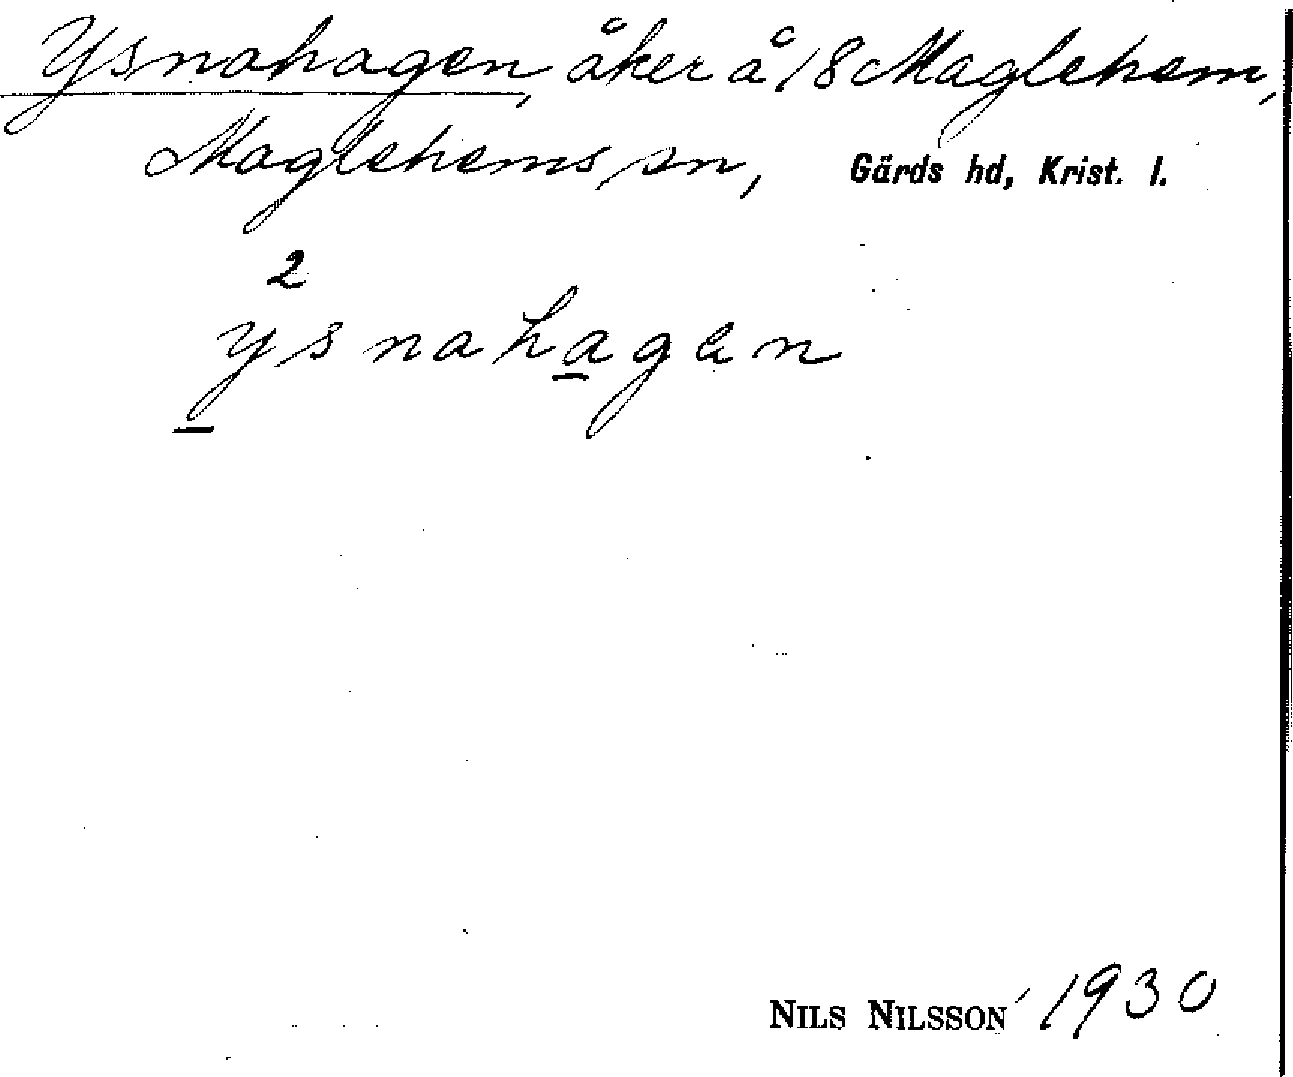 Ysnahagen, åker å 18 Maglehem,
Maglehems sn, Gärds hd, Krist. l.
2
ysnahagen
NILS NILSSON 1930